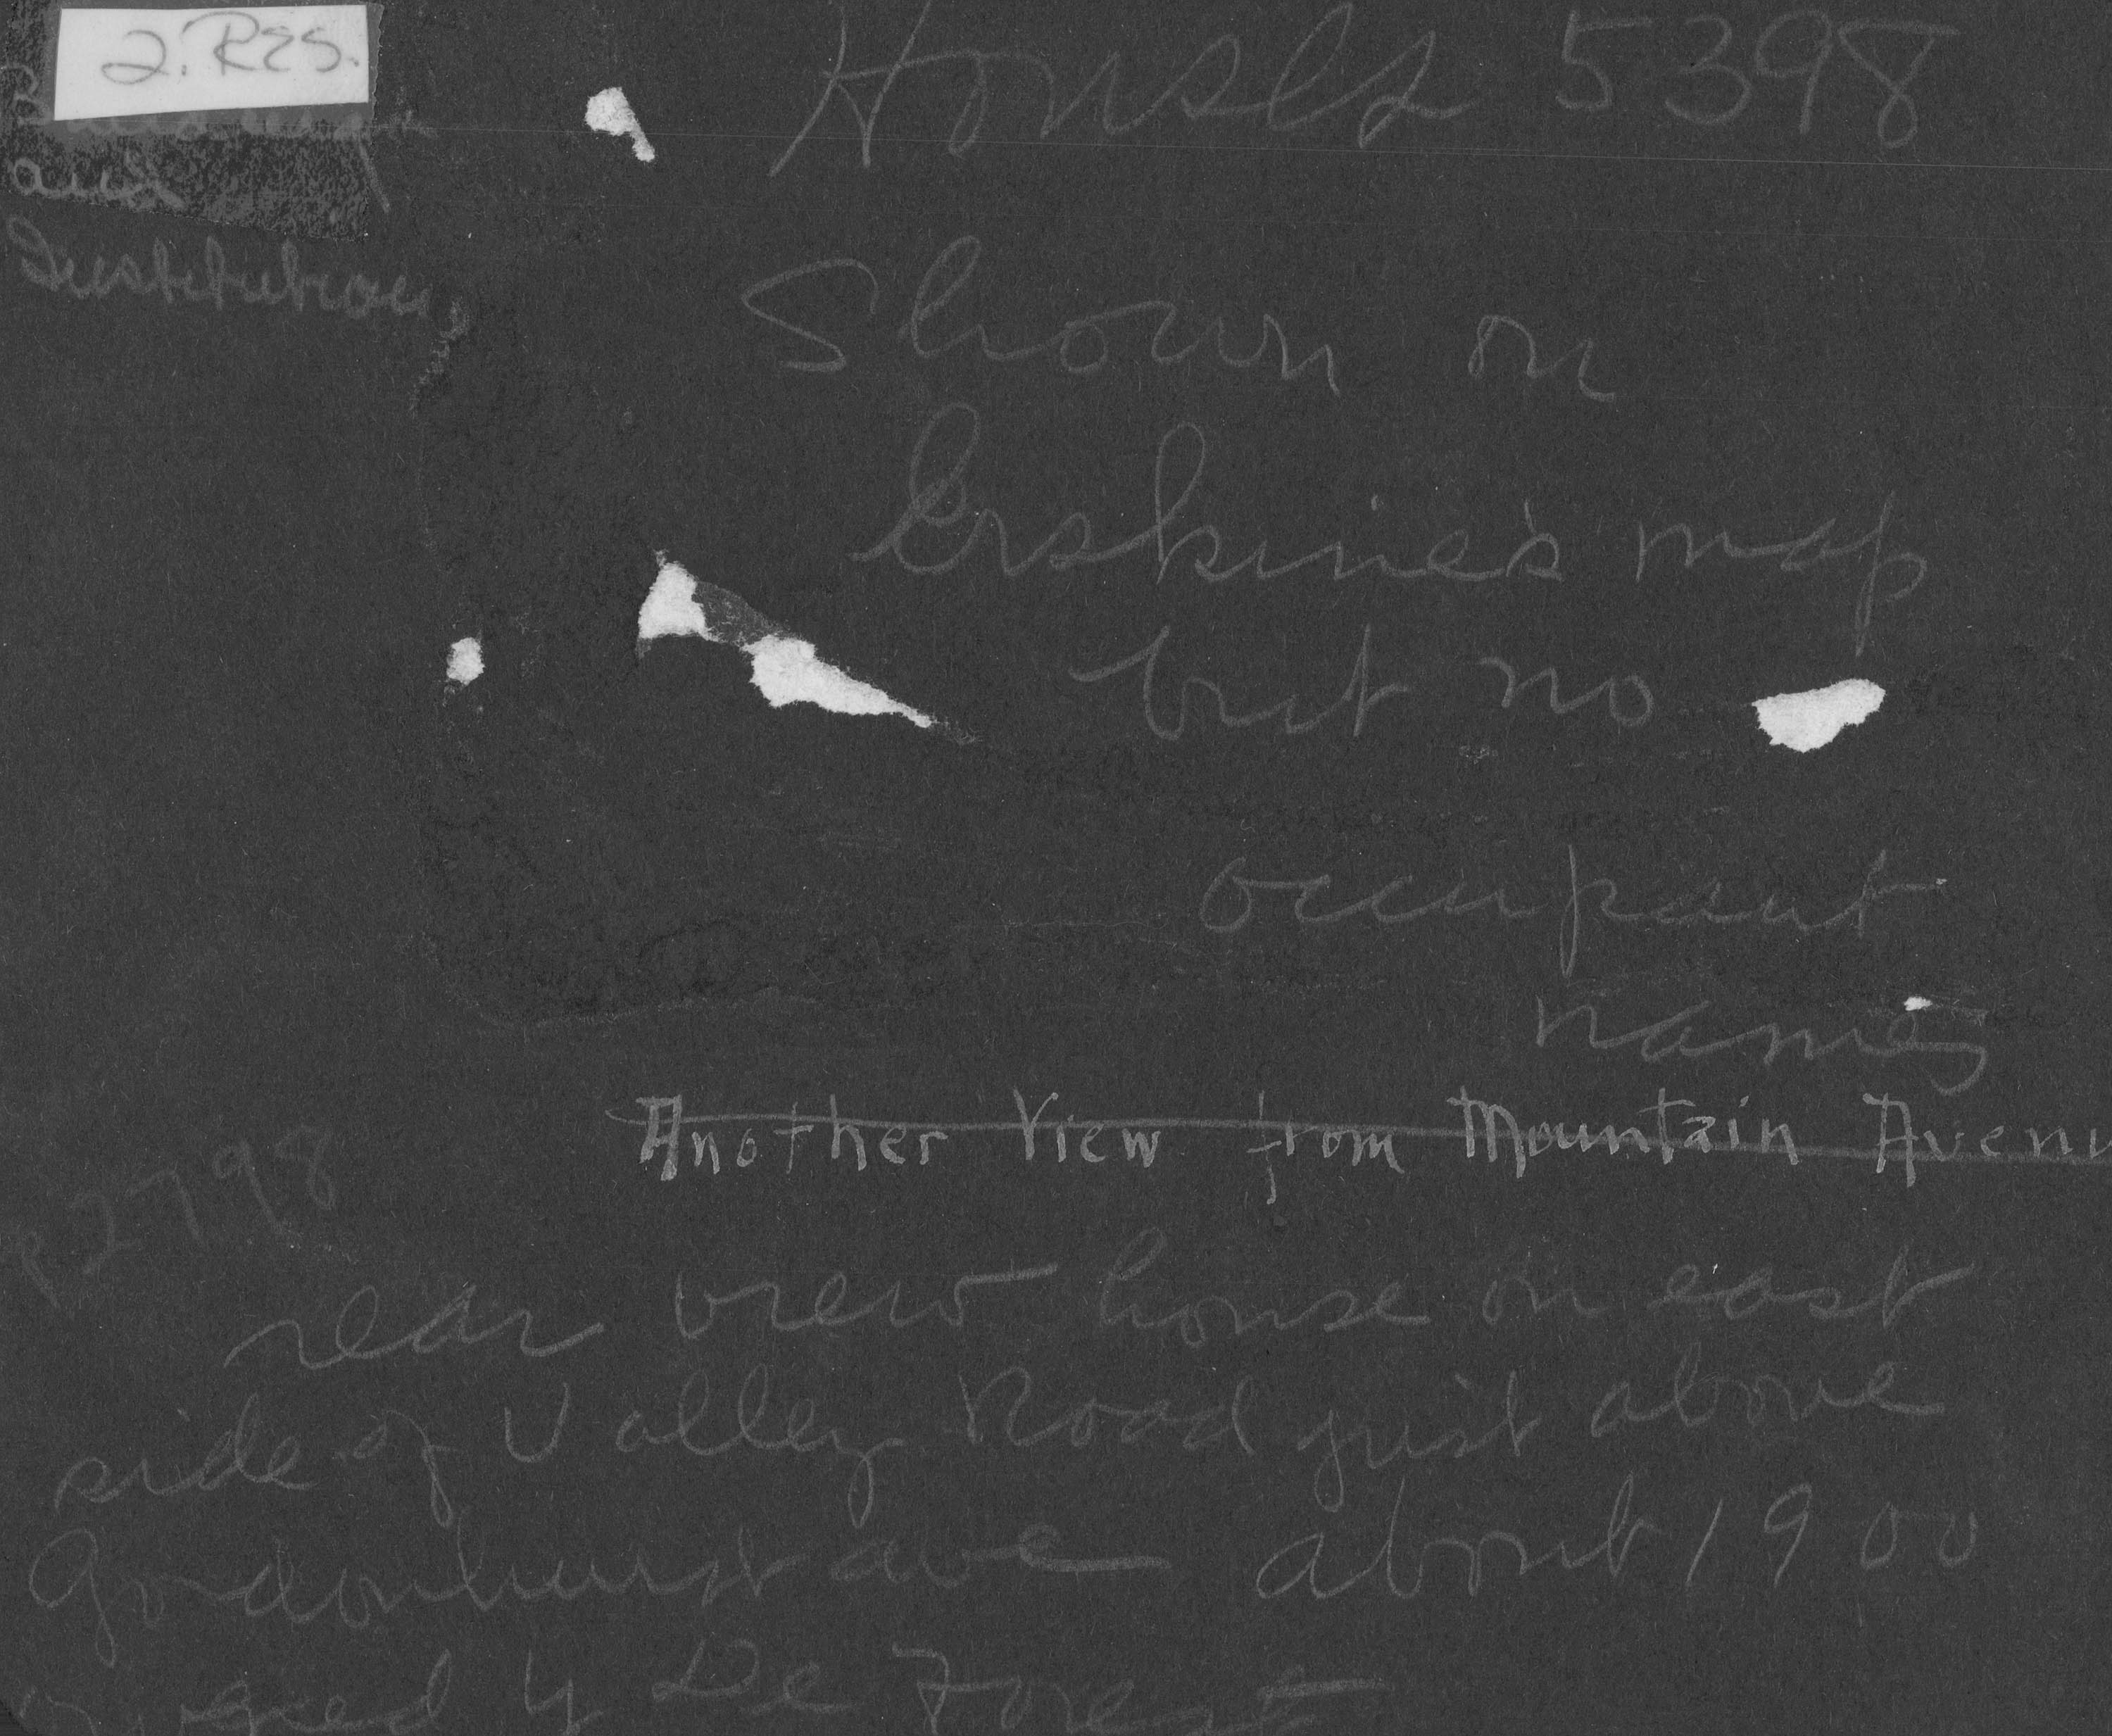 2. RES.
and
Institutions
Houses 5398
Shown on
Erskine's map
but no
occupant
names
Another View from Mountain Avenu
P2798
rear view house on east
side of Valley Road just above
Gordonhurst ave about 1900
by De Forest